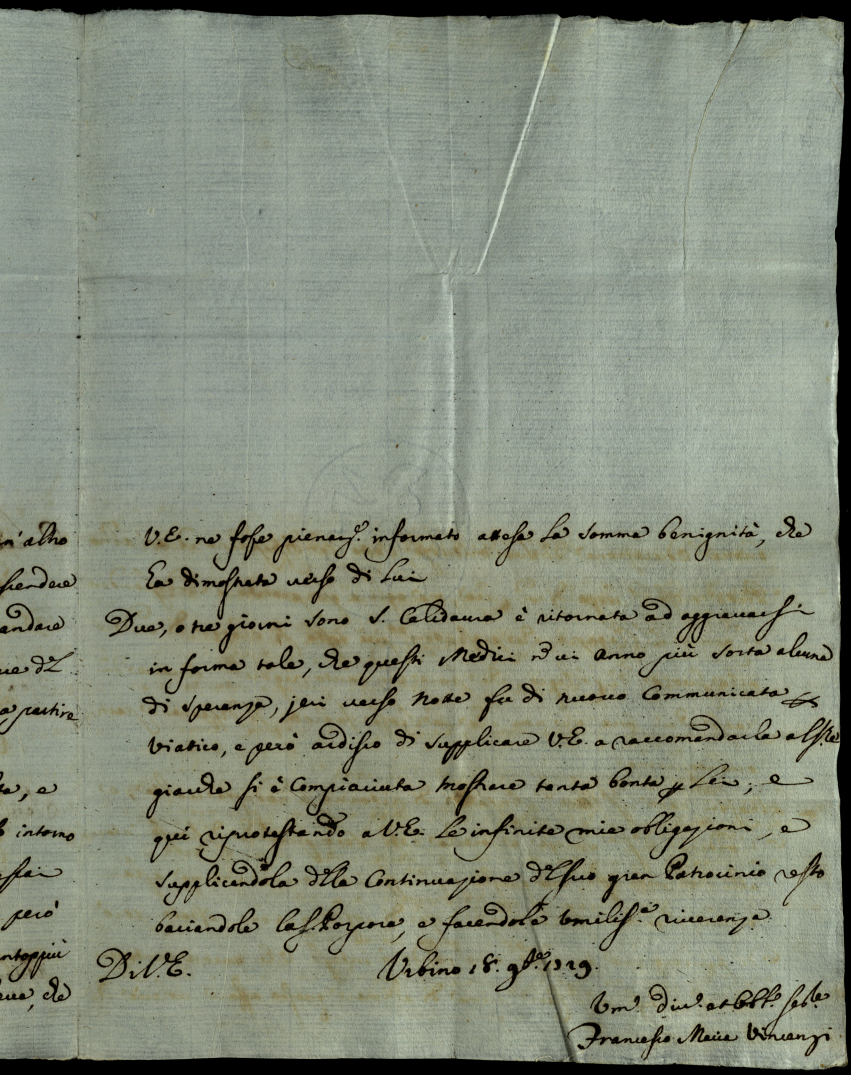 n'altro
scendere
andare
ue dl
a partire
ta, e
intorno
però
ntoppiù
che
V.E. ne fosse pienamᵉ. informato attesa la somma benignità, che
ha dimostrata verso di Lui
Due, o tre giorni sono S. Celidaura è ritornata ad aggravarsi
in forma tale, che questi Medici nō vi anno più sorta alcuna
di speranza, jeri verso notte fu di nuovo Communicata
Viatico, e però ardisco di supplicare V.E. a raccomandarla al Sig.re
giacche si è Compiaciuta mostrare tanta bontà p Lei, e
quì riprotestando a V.E. le infinite mie obligazioni, e
supplicandola dlla Continuazione dl suo gran Patrocinio resto
baciandole la S. Porpora, e facendole umilisᵃ. riverenza
Di V.E.
Urbino 18. 9bre. 1729.
Um.º Div.º et Obb.º Se.re
Francesco Maria Vincenzi